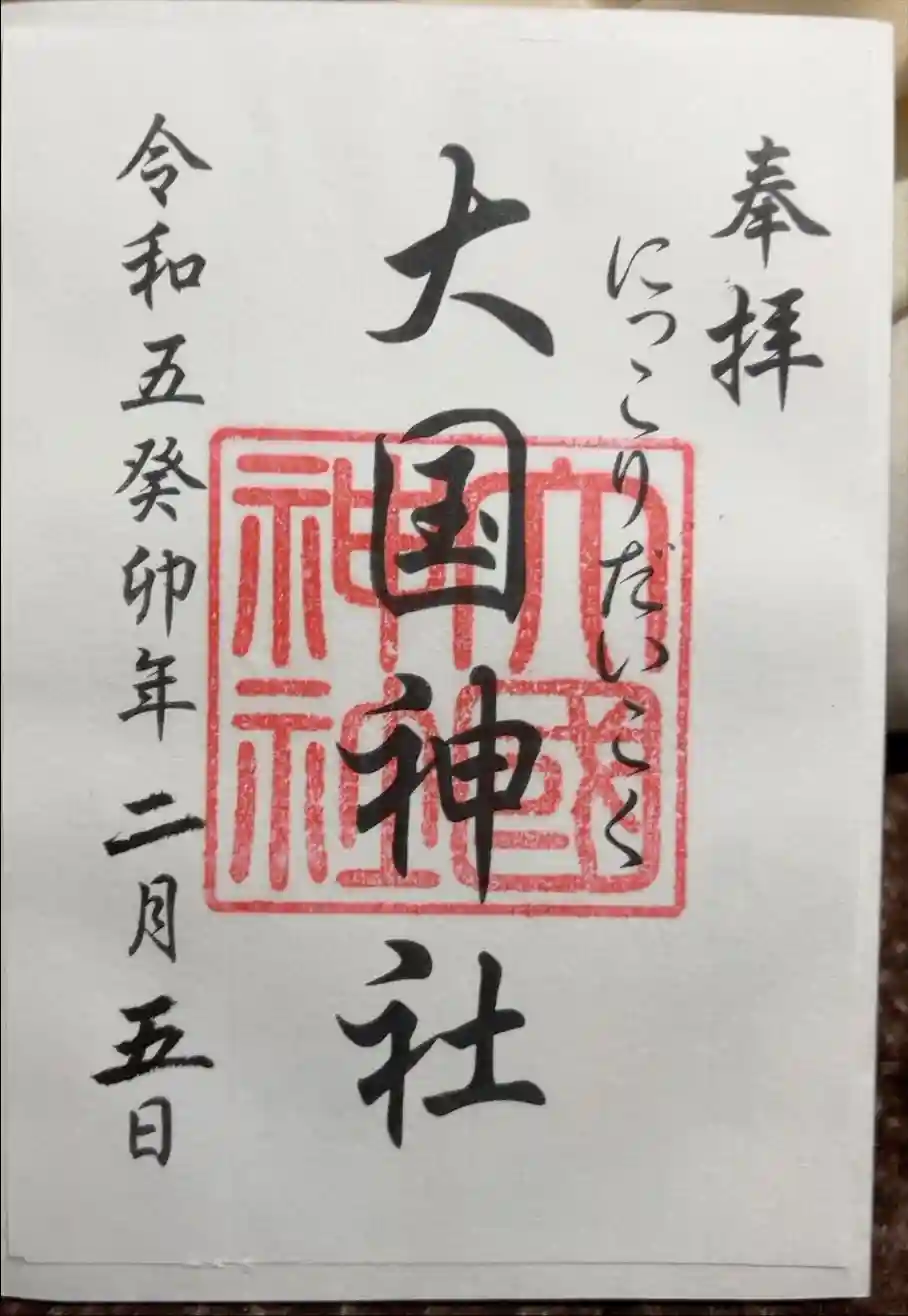 奉拝
にっこりだいこく
大国神社
大國神社
令和五癸卯年二月五日